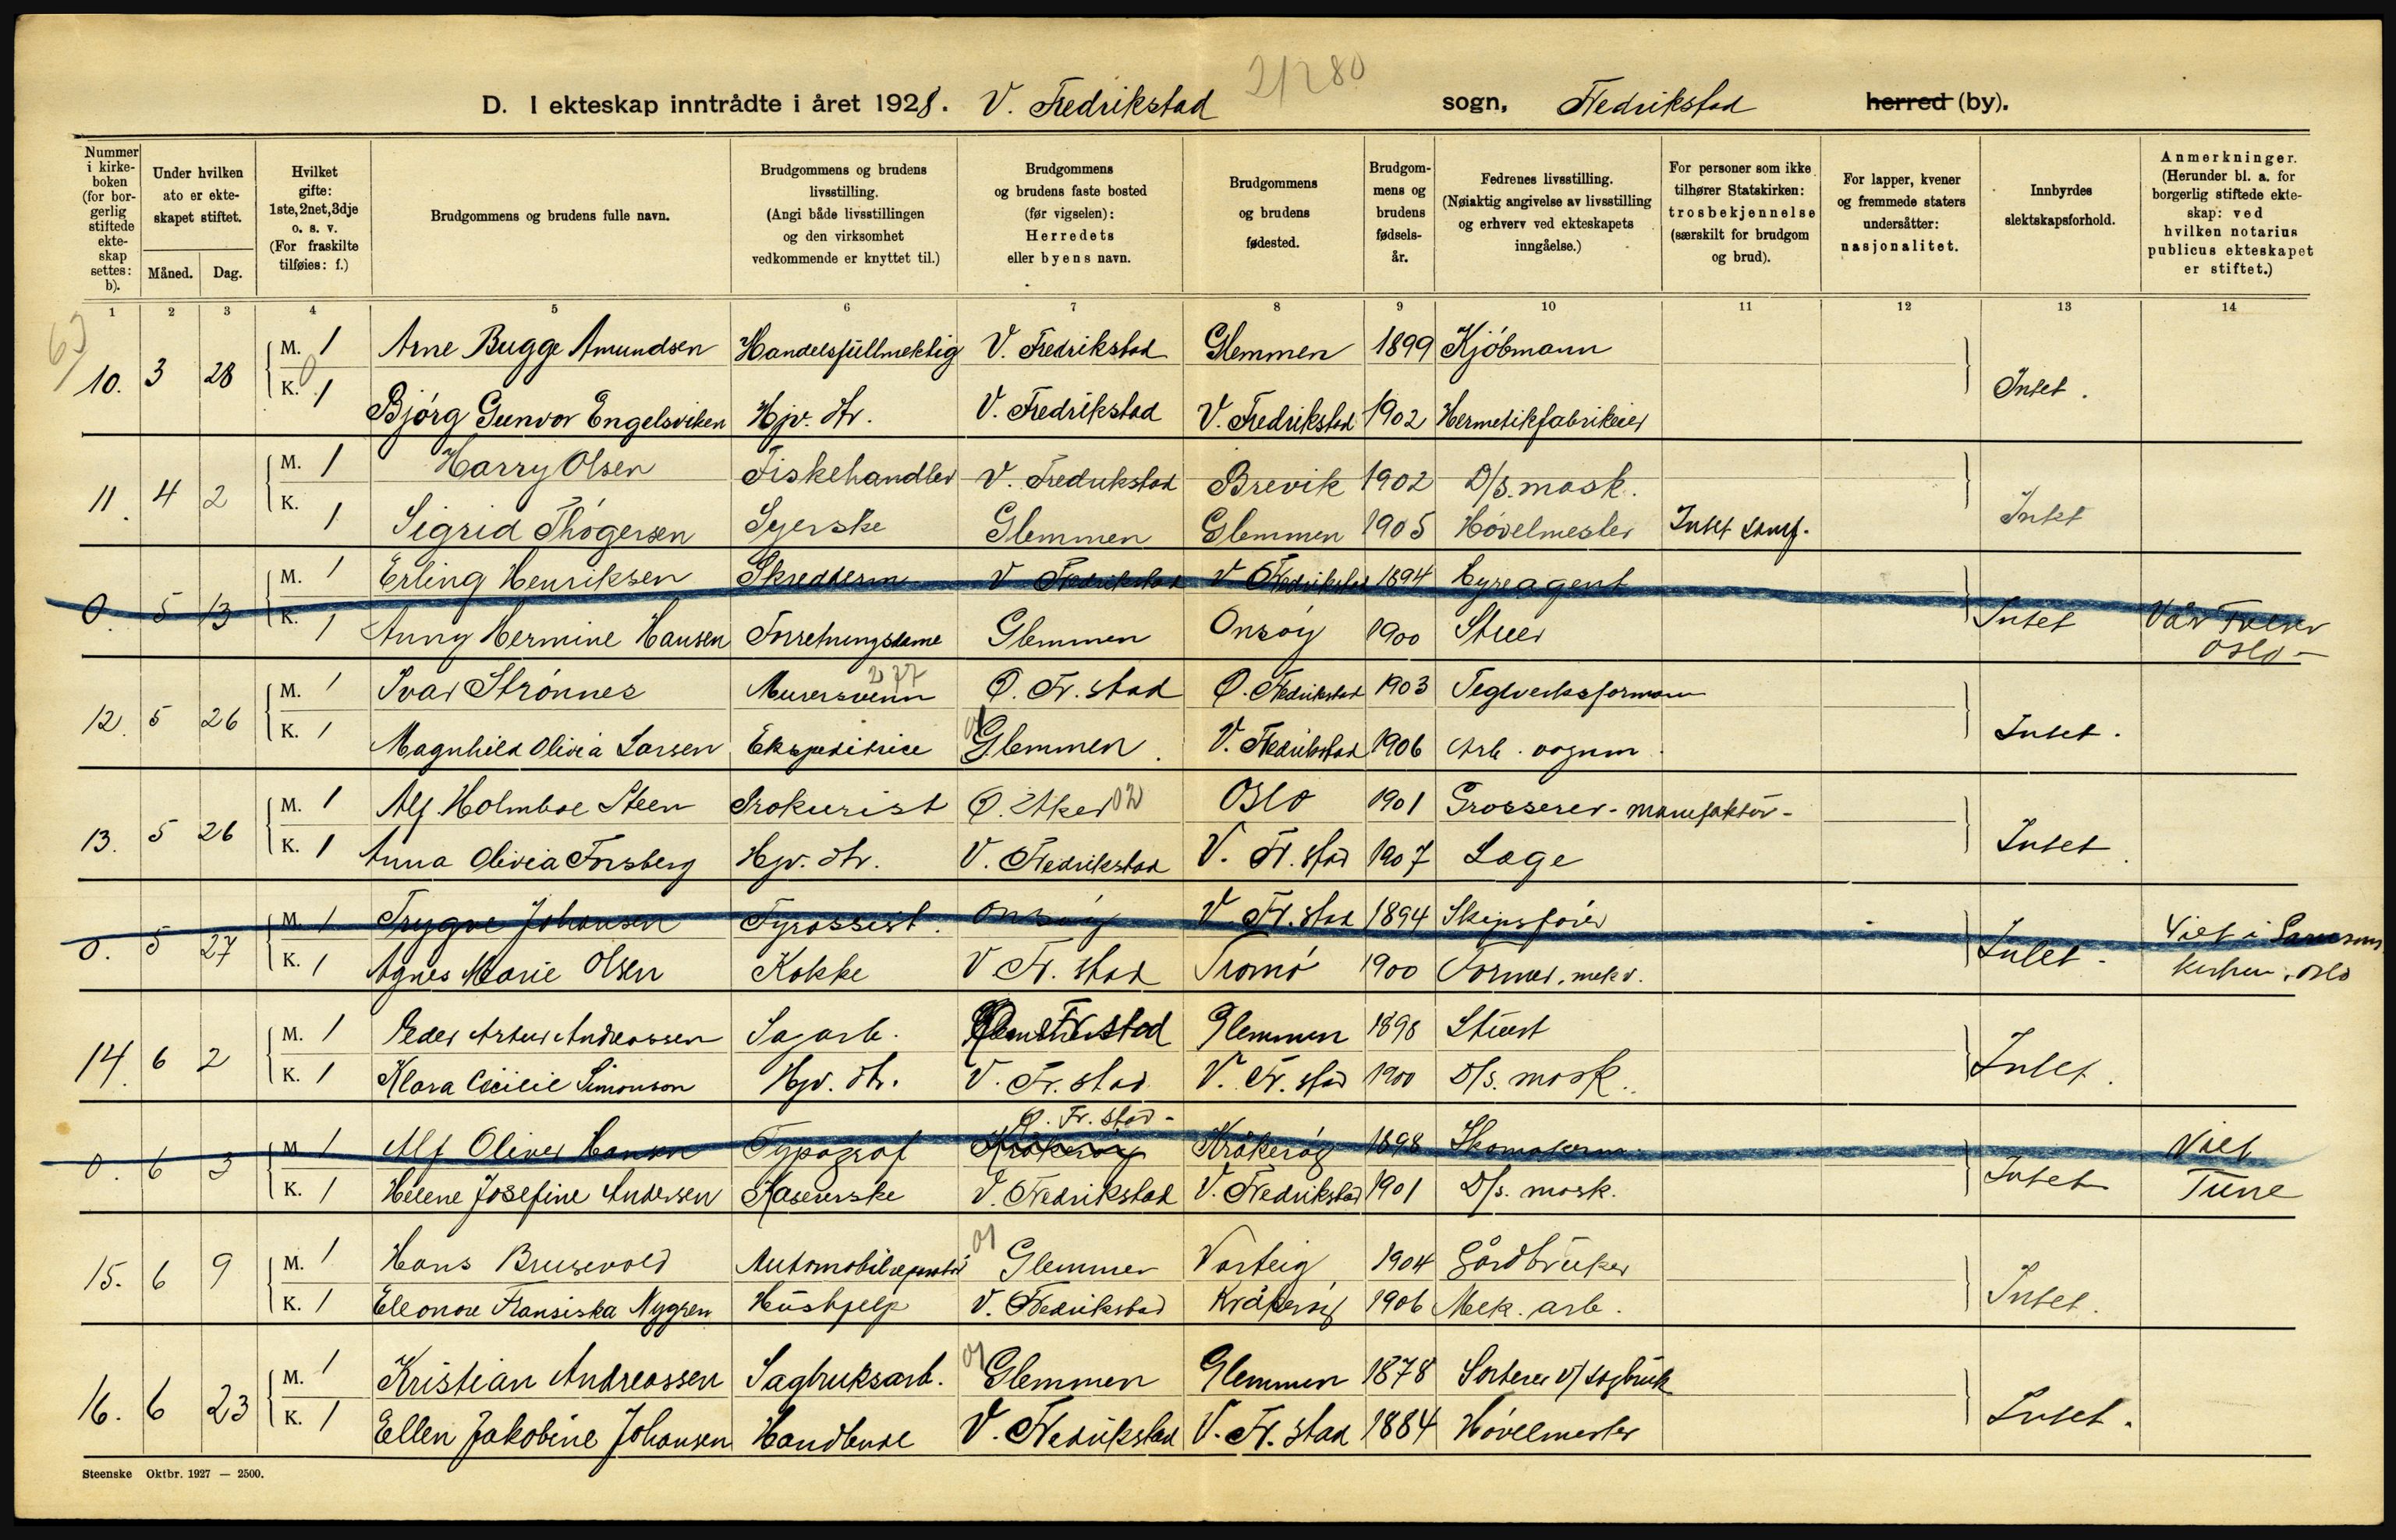 21280
D. I ekteskap inntrådte i året 1928. V. Fredrikstad sogn, Fredrikstad herred (by).
Nummer i kirke-boken (for bor-gerlig stiftede ekte-skap settes: b).
Under hvilken ato er ekte-skapet stiftet.
Måned. Dag.
Hvilket gifte: 1ste, 2net, 3dje o. s. v. (For fraskilte tilføies: f.)
Brudgommens og brudens fulle navn.
Brudgommens og brudens livsstilling. (Angi både livsstillingen og den virksomhet vedkommende er knyttet til.)
Brudgommens og brudens faste bosted (før vigselen): Herredets eller byens navn.
Brudgommens og brudens fødested.
Brudgom-mens og brudens fødsels-år.
Fedrenes livsstilling. (Nøiaktig angivelse av livsstilling og erhverv ved ekteskapets inngåelse.)
For personer som ikke tilhører Statskirken: trosbekjennelse (særskilt for brudgom og brud).
For lapper, kvener og fremmede staters undersåtter: nasjonalitet.
Innbyrdes slektskapsforhold.
Anmerkninger. (Herunder bl. a. for borgerlig stiftede ekte-skap: ved hvilken notarius publicus ekteskapet er stiftet.)
1 2 3 4 5 6 7 8 9 10 11 12 13 14
10. 3 28 M. 1 Arne Bugge Amundsen Handelsfullmektig V. Fredrikstad Glemmen 1899 Kjøbmann Intet.
K. 1 Bjørg Gunvor Engelsviken Hjv. dtr. V. Fredrikstad V. Fredrikstad 1902 Hermetikfabrikeier
11. 4 2 M. 1 Harry Olsen Fiskehandler V. Fredrikstad Brevik 1902 D/s. mask. Intet
K. 1 Sigrid Thøgersen Syerske Glemmen Glemmen 1905 Høvelmester Intet samf.
0. 5 13 M. 1 Erling Henriksen Skredderm V. Fredrikstad V. Fredrikstad 1894 Hyreagent Intet Vår Frelser Oslo -
K. 1 Anny Hermine Hansen Forretningsdame Glemmen Onsøy 1900 Stuer
12. 5 26 M. 1 Ivar Strønnes Murersvenn 277 Ø. Fr. stad Ø. Fredrikstad 1903 Teglverksformann Intet.
K. 1 Magnhild Olivia Larsen Ekspeditrice Glemmen. V. Fredrikstad 1906 Arb. vognm.
13. 5 26 M. 1 Alf Holmboe Steen Prokurist Ø. Aker 02 Oslo 1901 Grosserer - manufaktur - Intet.
K. 1 Anna Olivia Forsberg Hjv. dtr. V. Fredrikstad V. Fr. stad 1907 Læge
0. 5 27 M. 1 Trygve Johansen Fyrassist. Onsøy V. Fr. stad 1894 Skipsfører Intet - Viet i kirken, Oslo
K. 1 Agnes Marie Olsen Kokke V Fr. stad Tromø 1900 Former, mek v.
14. 6 2 M. 1 Peder Artur Andreassen Sagarb. Glemmen 1898 Stuert Intet.
K. 1 Klara Cecilie Simonson Hjv. dtr. V. Fr. stad V. Fr. stad 1900 D/s. mask.
Ø. Fr. stad -
0. 6 3 M. 1 Alf Oliver Hansen Typograf Kråkerøy Kråkerøy 1898 Skomakerm. Intet Viet Tune
K. 1 Helene Josefine Andersen Kasererske V. Fredrikstad V. Fredrikstad 1901 D/s. mask.
15. 6 9 M. 1 Hans Brusevold Automobilreparatør 01 Glemmen Varteig 1904 Gårdbruker Intet.
K. 1 Eleonore Fransiska Nygren Hushjelp V. Fredrikstad Kråkerøy 1906 Mek. arb.
16. 6 23 M. 1 Kristian Andreassen Sagbruksarb. 01 Glemmen Glemmen 1878 Sorterer v/ sagbruk Intet.
K. 1 Ellen Jakobine Johansen Handlende V. Fredrikstad V. Fr. stad 1884 Høvelmester
Steenske Oktbr. 1927 — 2500.